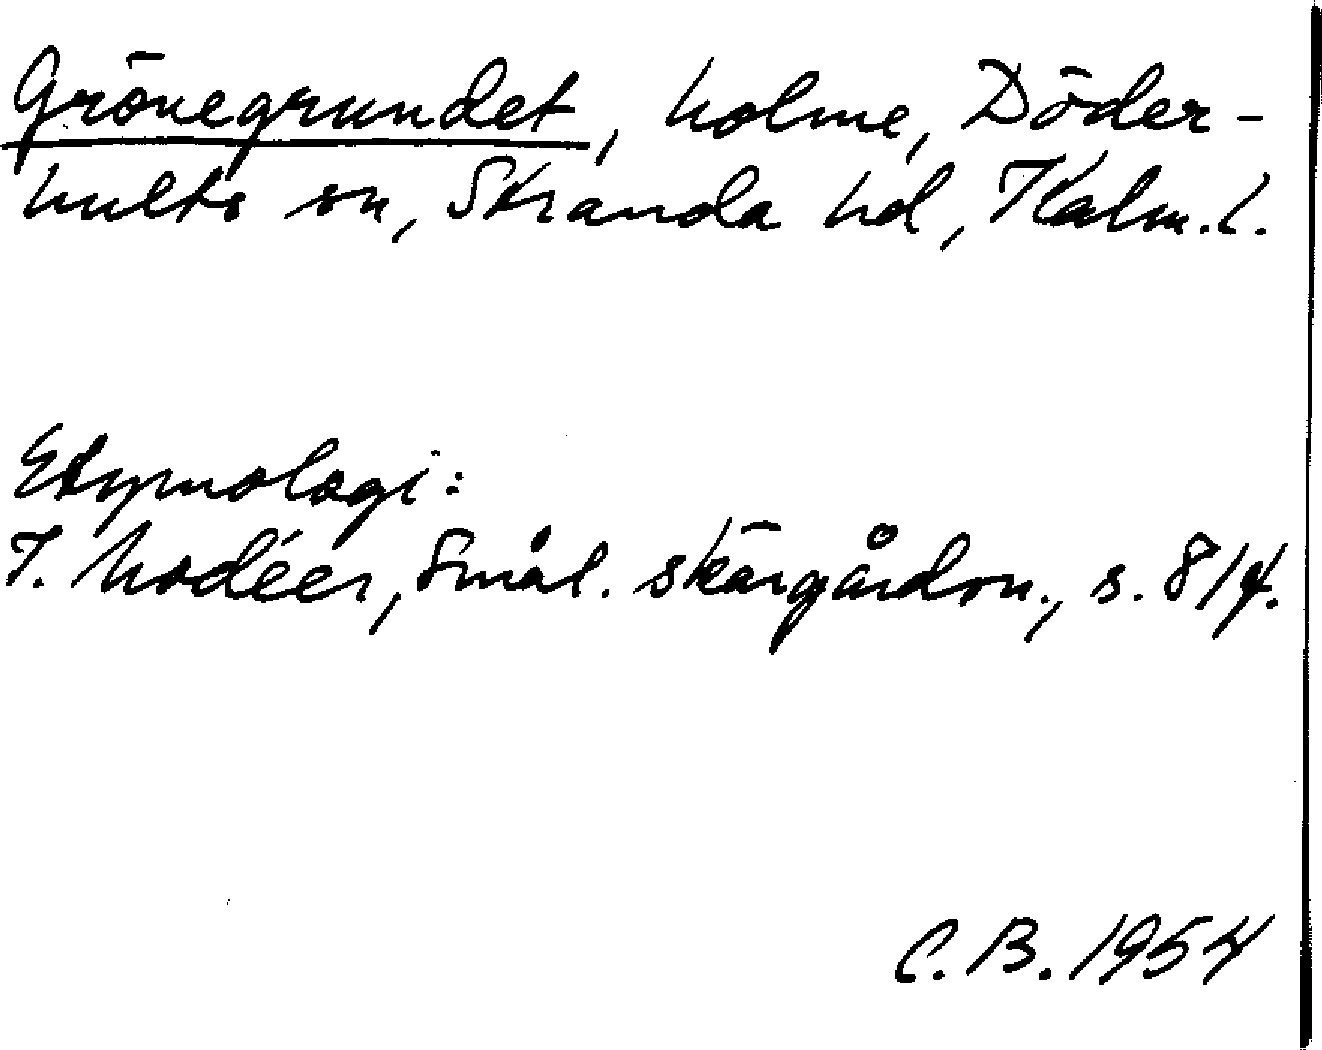 Grönegrundet, holme, Döder-
hults sn, Stranda hd, Kalm. l.
Etymologi:
I. Modéer, Smål. skärgårdsn., s. 8/4.
C. B. 1954